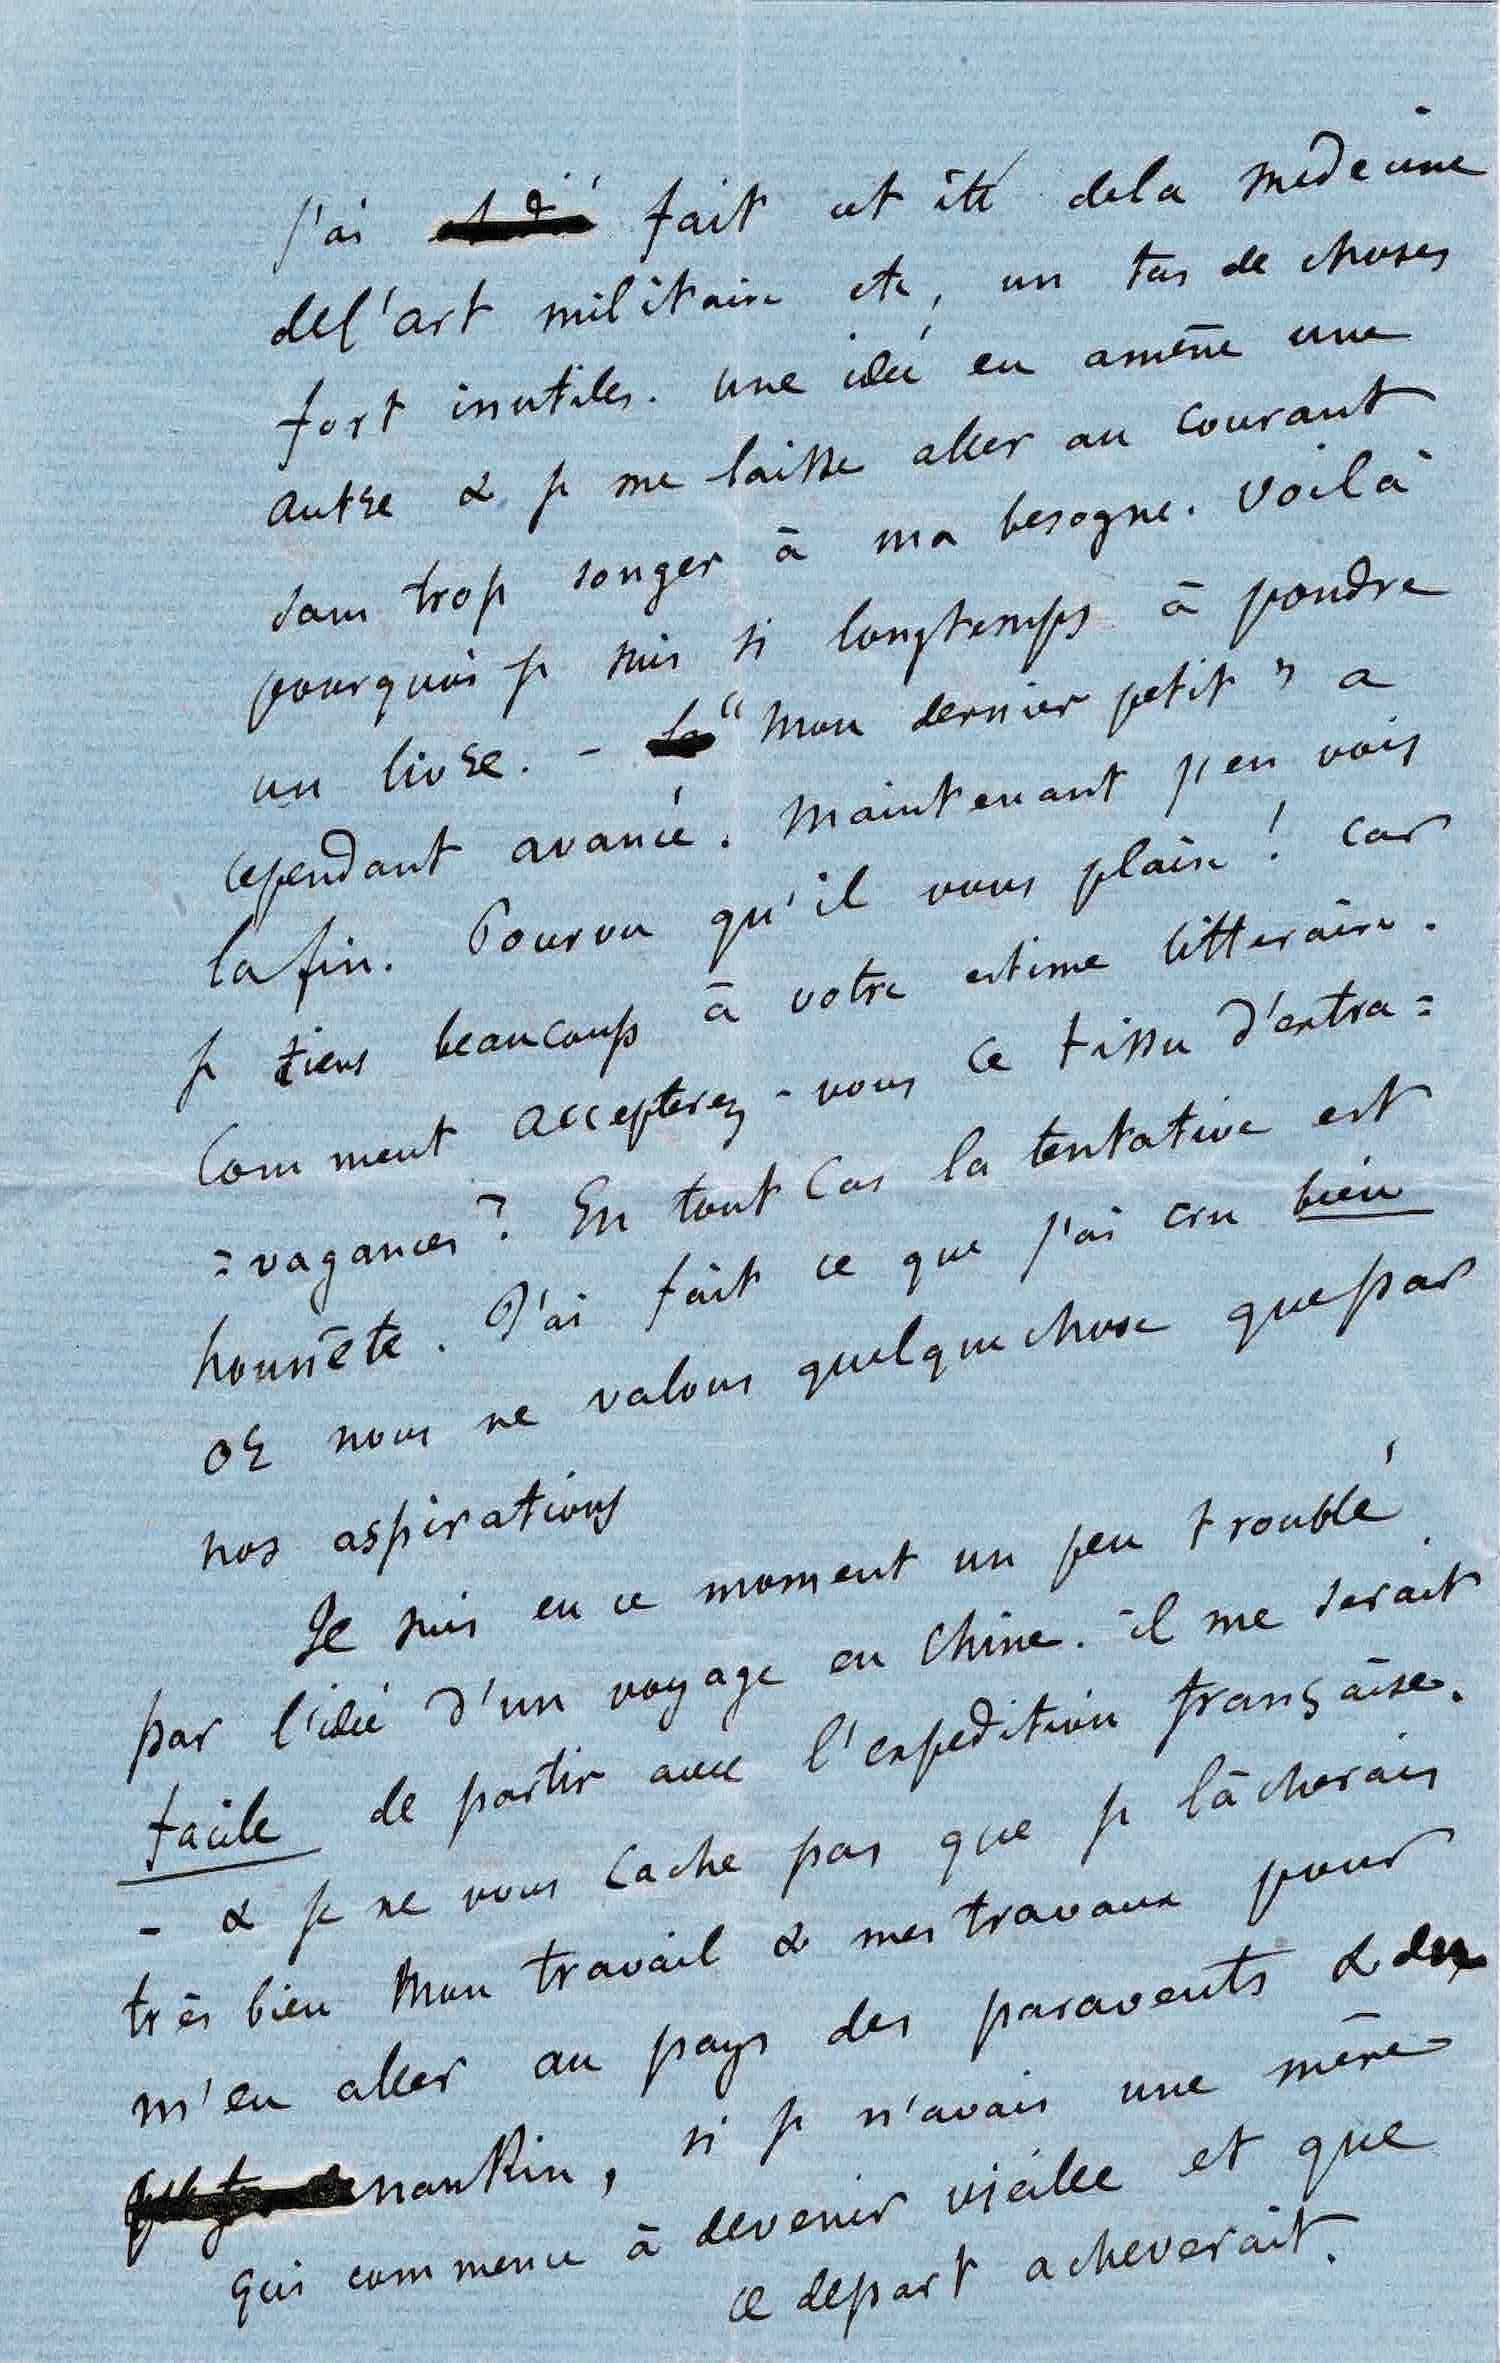 J'ai fait cet été dela medecine
del'art militaire etc, un tas de choses
fort inutiles. une idée en amène une
autre & je me laisse aller au courant
sans trop songer à ma besogne. Voilà
pourquoi je suis si longtemps à pondre
un livre. - "Mon dernier petit" a
cependant avancé. Maintenant j'en vois
la fin. Pourvu qu'il vous plaise! Car
je tiens beaucoup à votre estime litteraire.
Comment accepterez-vous ce tissu d'extra=
=vagances? En tout Cas la tentative est
honnête. J'ai fait ce que j'ai cru bien
or nous ne valons quelquechose quepar
nos aspirations
Je suis en ce moment un peu troublé
par l'idée d'un voyage en Chine. il me serait
facile de partir avec l'expedition française.
- & je ne vous Cache pas que je lâcherais
très bien Mon travail & mes travaux pour
m'en aller au pays des paravents & du
nankin, si je n'avais une mère
qui commence à devenir vieille et que
ce depart acheverait.